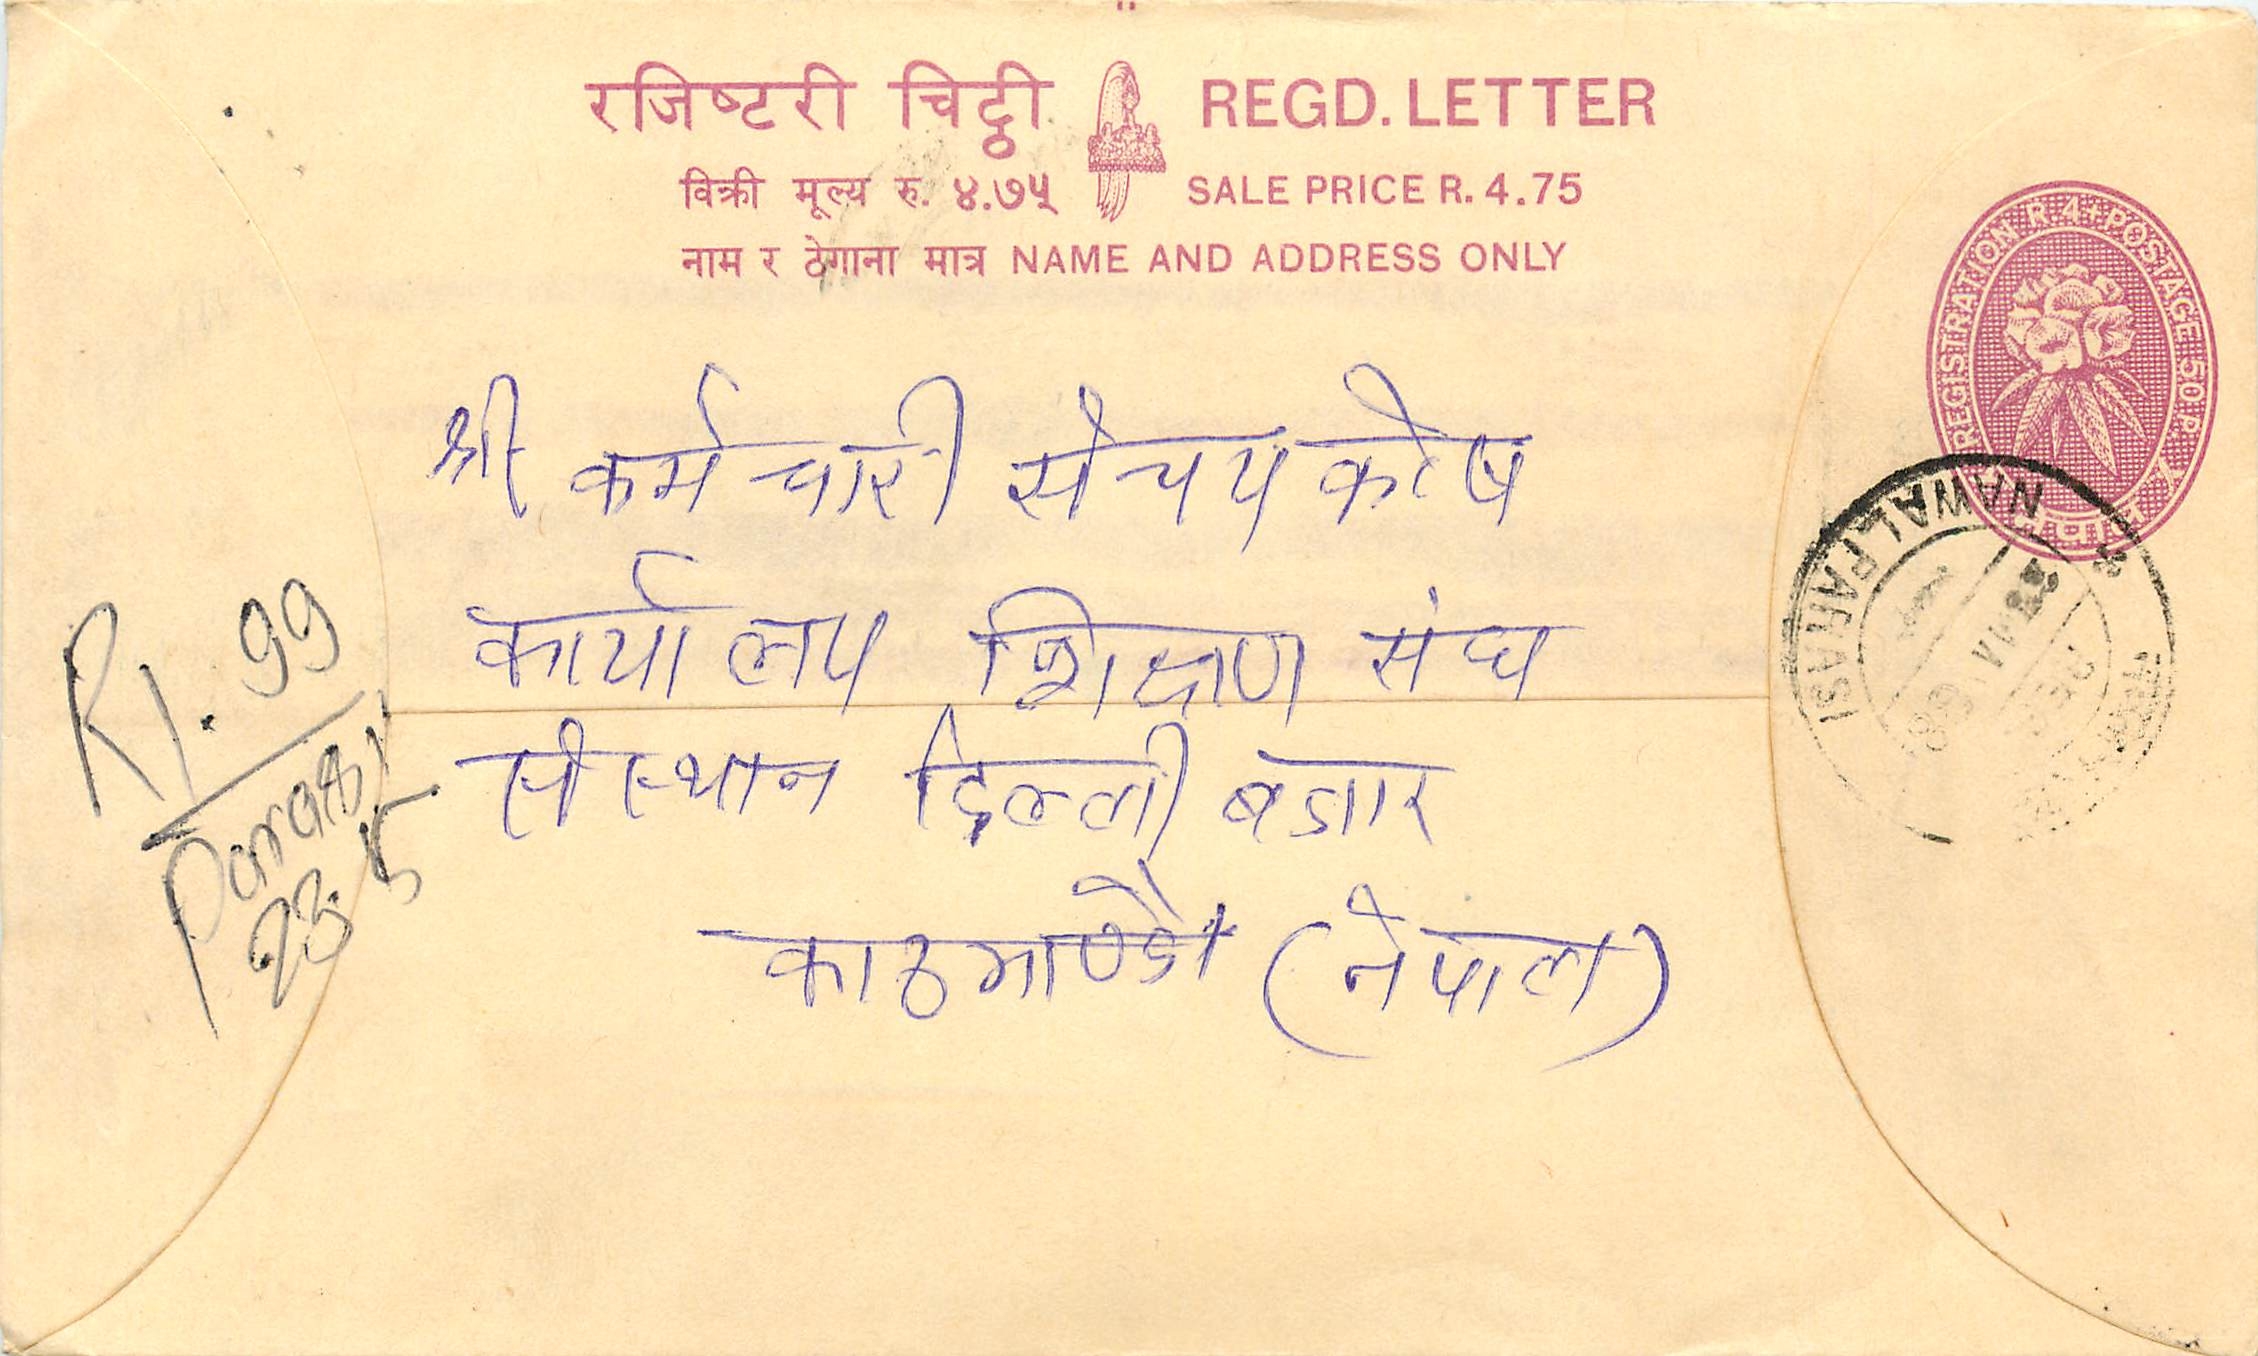 रजिष्टरी चिट्ठी REGD. LETTER
विक्री मूल्य रु. ४.७५ SALE PRICE R. 4.75
नाम र ठेगाना मात्र NAME AND ADDRESS ONLY
REGISTRATION R. 4+POSTAGE 50 P.
श्री कर्मचारी संचय कोष
कार्यालय शिक्षण संघ
संस्थान दिल्ली बजार
काठमाण्डौ (नेपाल)
NAWALPARASI
Parasi